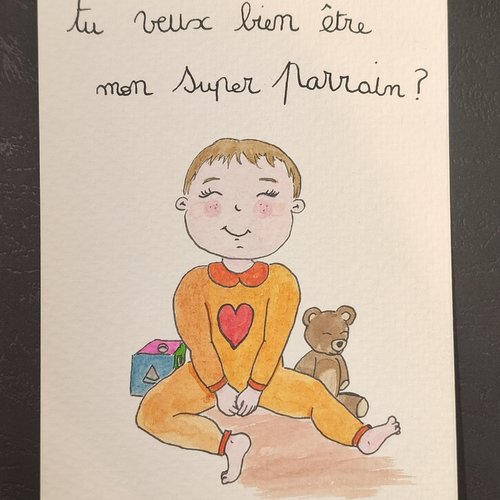 tu veux bien être
mon super parrain ?